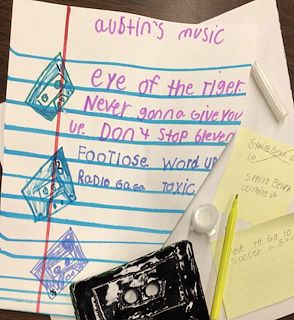 austin's music
eye of the Tiger.
Never gonna Give you
up. Don't Stop bleven
Footlose. Word up
Radio Gaga Toxic.
to Go to
soccer